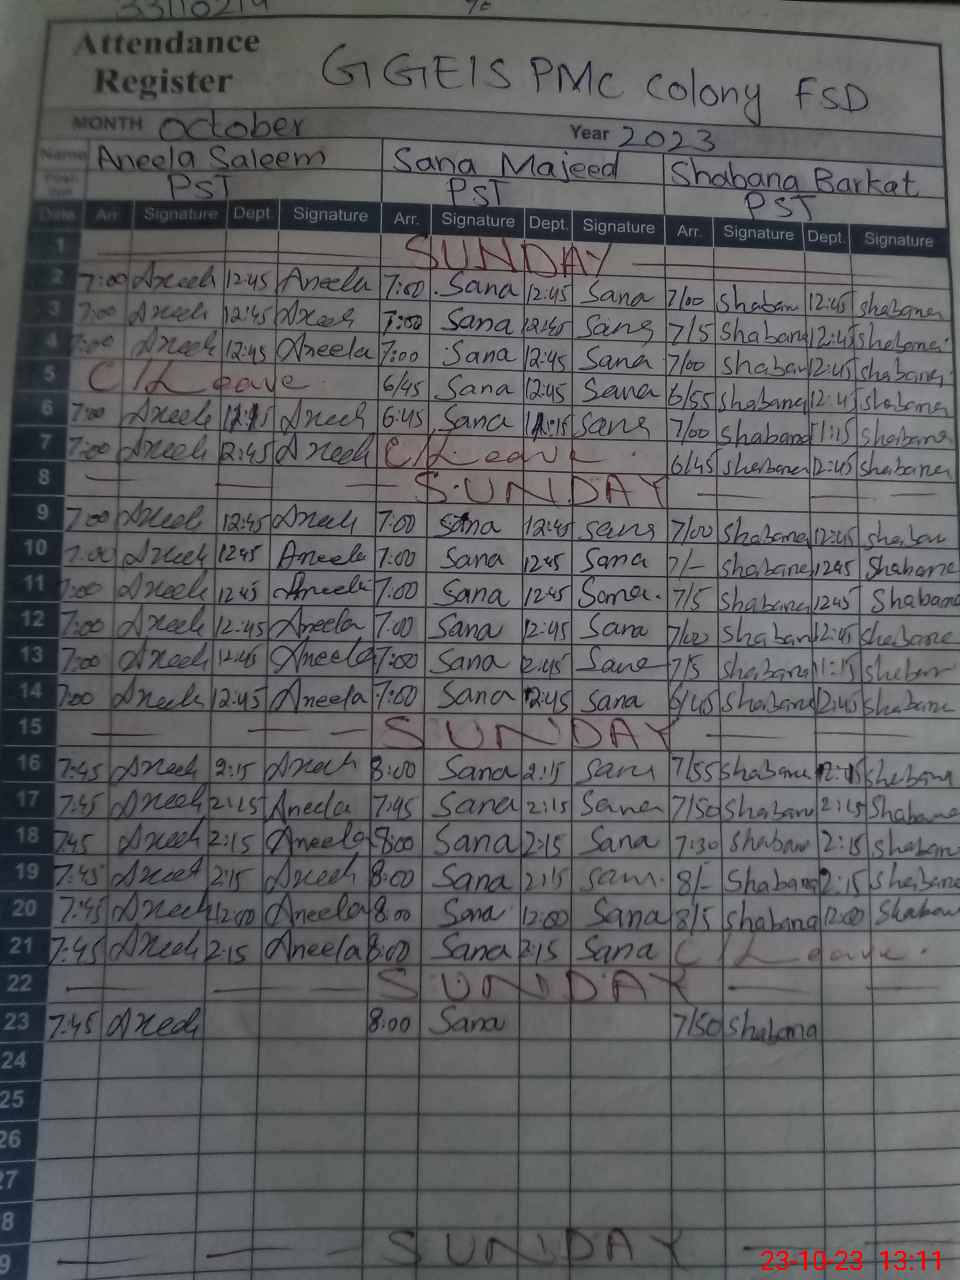 33110214
Attendance
Register
GGEIS PMC Colony FSD
MONTH October Year 2023
Name Aneela Saleem Sana Majeed Shabana Barkat
PST PST PST
Date Arr Signature Dept Signature Arr. Signature Dept. Signature Arr. Signature Dept. Signature
1 SUNDAY
2 7:00 Aneela 12:45 Aneela 7:00 Sana 12:45 Sana 7/00 Shaban 12:45 Shabana
3 7:00 Aneela 12:45 Aneela 7:00 Sana 12:45 Sana 7/5 Shabana 12:45 Shabana
4 7:00 Aneela 12:45 Aneela 7:00 Sana 12:45 Sana 7/00 Shaban 12:45 Shabana
5 C/Leave 6/45 Sana 12:45 Sana 6/55 Shabana 12:45 Shabana
6 7:00 Aneela Aneela 6:45 Sana 11:15 Sana 7/00 Shabana 11:15 Shabana
7 7:00 Aneela 12:45 Aneela C/Leave 6/45 Shabana 12:45 Shabana
8 SUNDAY
9 7:00 Aneela 12:45 Aneela 7:00 Sana 12:45 Sana 7/00 Shabana 12:45 Shaban
10 7:00 Aneela 1245 Aneela 7:00 Sana 1245 Sana 7/- Shabana 1245 Shabana
11 7:00 Aneela 1245 Aneela 7:00 Sana 1245 Sana 7/5 Shabana 1245 Shabana
12 7:00 Aneela 12:45 Aneela 7:00 Sana 12:45 Sana 7/00 Shaban 12:45 Shabana
13 7:00 Aneela 12:45 Aneela 7:00 Sana 2:45 Sana 7/5 Shabana 11:15 Shaban
14 7:00 Aneela 12:45 Aneela 7:00 Sana 12:45 Sana 6/45 Shabana 12:45 Shabana
15 SUNDAY
16 7:45 Aneela 2:15 Aneela 8:00 Sana 2:15 Sana 7/55 Shabana 2:15 Shabana
17 7:45 Aneela 2:15 Aneela 7:45 Sana 2:15 Sana 7/50 Shaban 2:15 Shabana
18 745 Aneela 2:15 Aneela 8:00 Sana 2:15 Sana 7:30 Shaban 2:15 Shaban
19 7:45 Aneela 2:15 Aneela 8:00 Sana 2:15 Sana 8/- Shabana 2:15 Shabana
20 7:45 Aneela 12:00 Aneela 8:00 Sana 12:00 Sana 8/5 Shabana 12:00 Shaban
21 7:45 Aneela 2:15 Aneela 8:00 Sana 2:15 Sana C/Leave
22 SUNDAY
23 7:45 Aneela 8:00 Sana 7/50 Shabana
24
25
26
27
8
9 SUNDAY
23-10-23 13:11